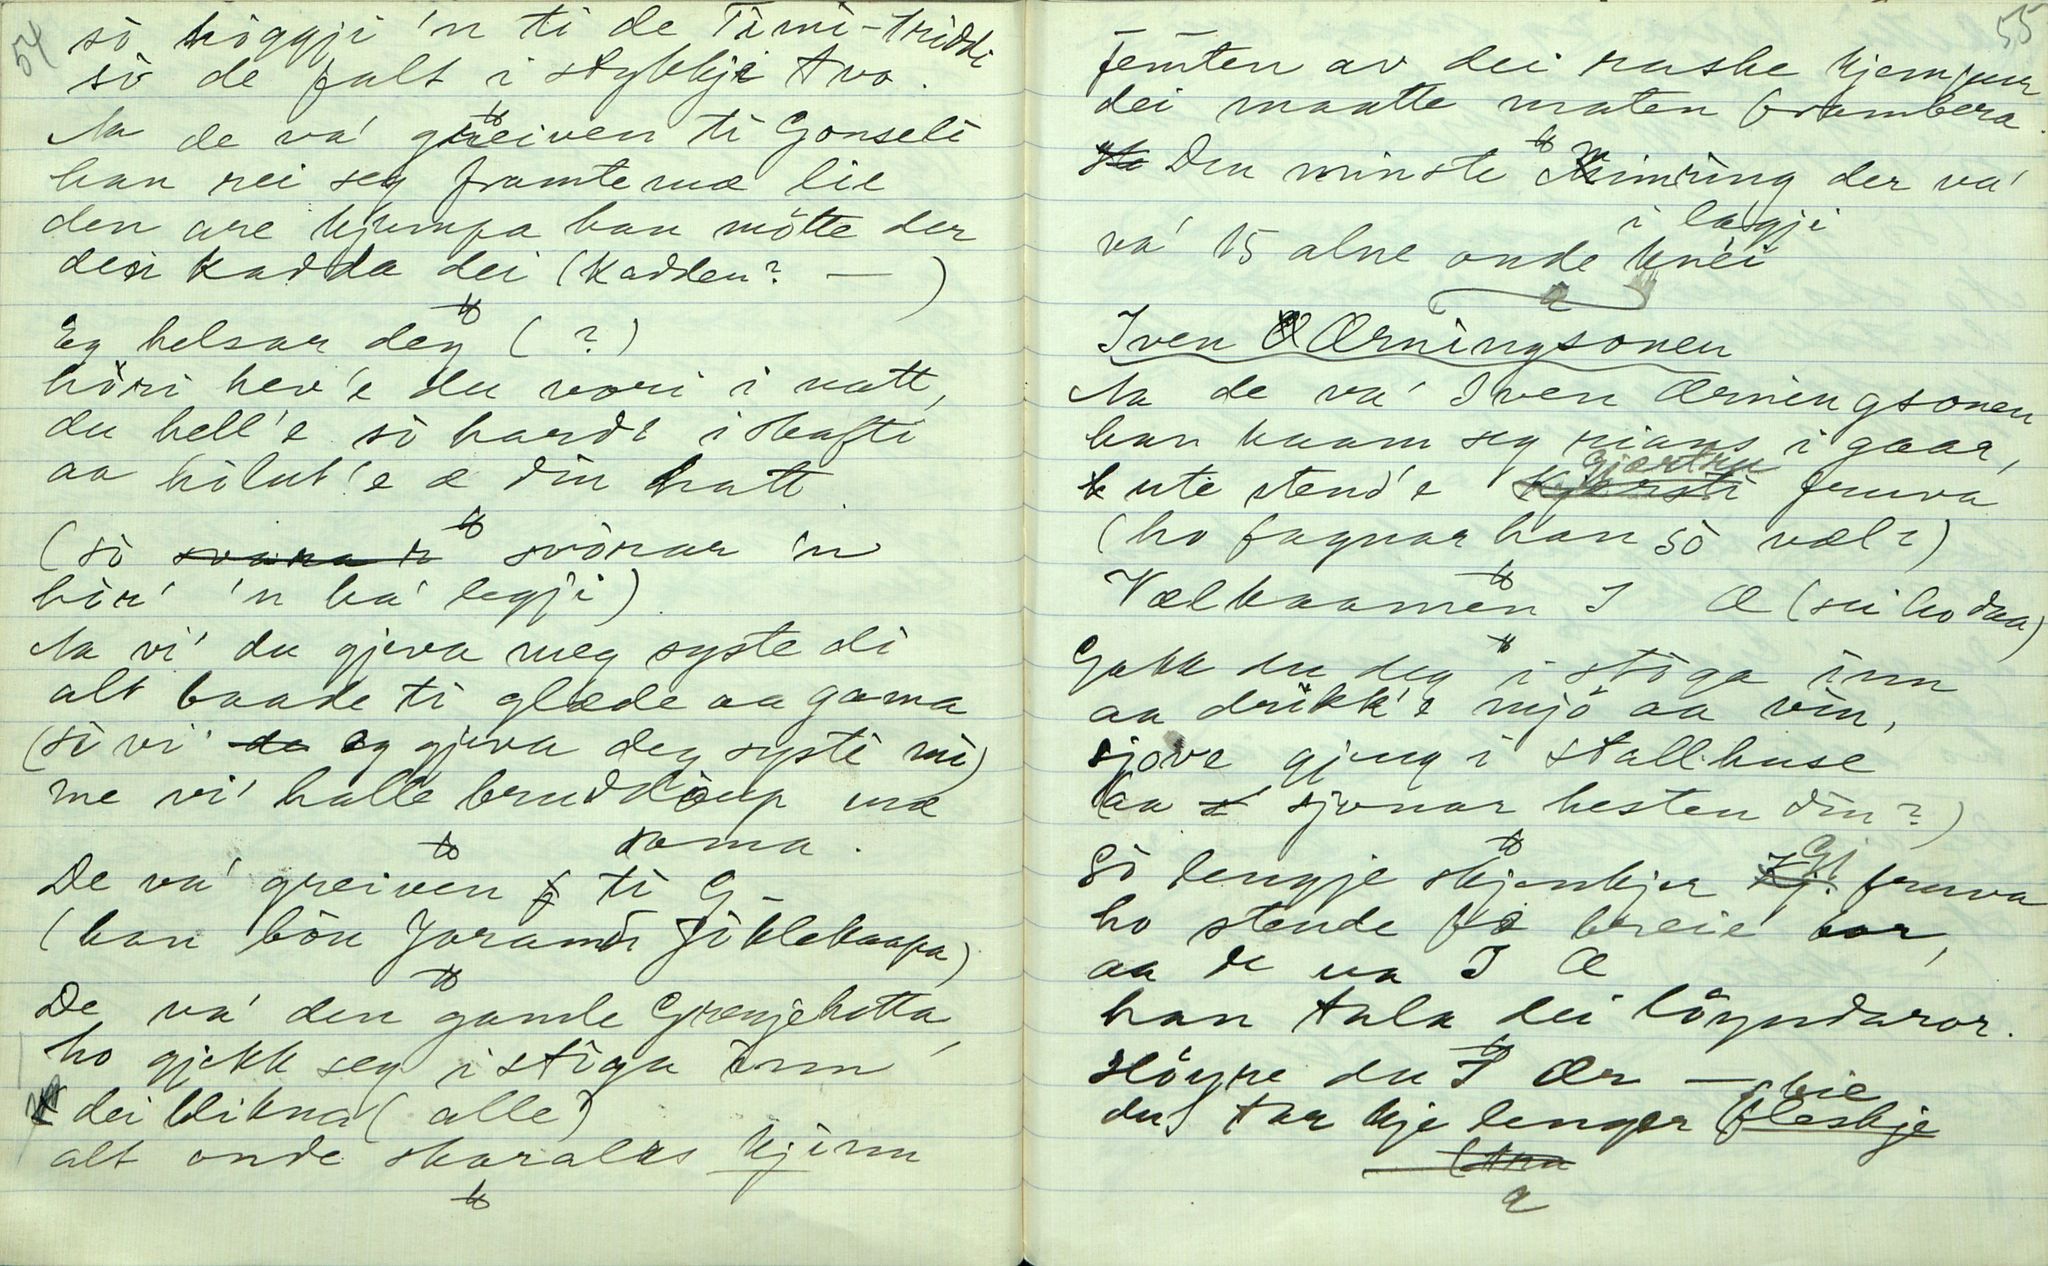 54
sò höggji 'n ti de Timi-triddi
sò de falt i stykkji tvo.
Aa de va' greiven ti Gonseli
han rei seg framte mæ lie
den are kjempa han mötte der
den kadda dei (Kadden? — )
Eg helsar deg (?)
höri hev'e du vori i natt,
du hell'e sò hardt i skafti
aa hòlut'e æ din hatt
(sò svarar svònar 'n
hòr' 'n ha' legji)
Aa vi' du gjeva meg syste di
alt baade ti glæde aa gama
(sò vi' eg gjeva deg systi mi)
me vi' halle bruddlöup mæ
sama.
De va' greiven ti G—
(han bön Joramm Jòklekaapa)
De va' den gamle Grænjehatta,
ho gjekk seg i stòga inn
dei blikna (alle)
alt onde skaraks kjinn
55
Femten av dei raske kjempur
dei maatte maten frambera.
Den minste Mimring der va'
i lagji
va' 15 alne onde knèi
Iven Ærningsonen
Aa de va' Iven Ærningsonen
han kaam seg rians i gaar,
ute stend'e Kjersti Gjærtru fruva
(ho fagnar han sò væl?)
Vælkaamen I Æ (sei ho daa)
Gakk du deg i stòga inn
aa drikk'e mjö aa vin,
sjøve gjeng i stallhuse
(aa sjonar hesten din?)
Sò lengje skjenkjer Kj. Gj. fruva
ho stende fe breie bor,
aa de va I Æ
han tala dei löyndaror.
Höyre du I Ær —
bie
du tar kje lenger fleskje